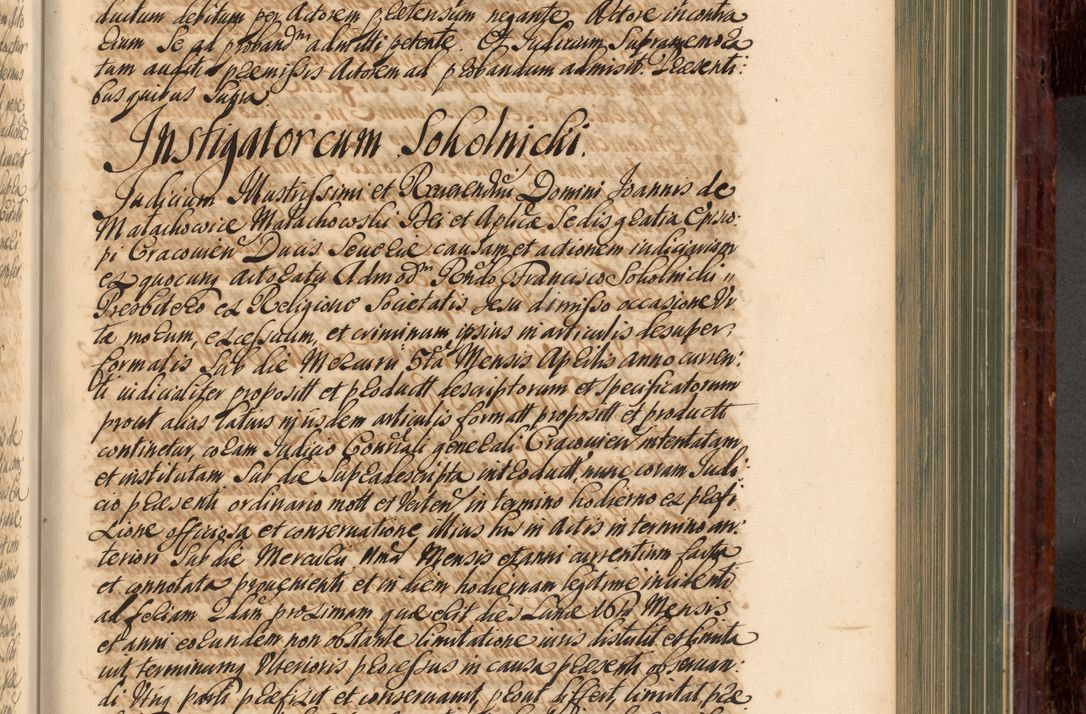 ductum debitum per Actorem prætensum negante. Actore in contra
rium se ad proband~m admitti petente. Et Judicium Supramemora
tum auditis præmissis Actorem ad probandum admisit. Præsenti:
bus quibus supra.
Instigator cum Sokolnicki.
Judicium Illustrissimi et Reverendissi Domini Joannis de
Małachowice Małachowski Dei et Aplicæ Sedis gratia Episco:
pi Cracovien Ducis Severiæ causam et actionem iudiciariam
ex quocunq actoratu Admod~m Rndo Francisco Sokolnicki
Presbitero ex Religione Societatis Jesu dimisso occasione Vi
tæ morum, excessuum, et criminum ipsius in articulis desuper
formatis Sub die Mercurii 5ta Mensis Aprilis anno curren:
ti iudicialiter propositt et productt descriptorum et specificatorum
prout alias latius in iisdem articulis formatt propositt et productt
continetur, coram Judicio Consriali generali Cracovien intentatam
et institutam Sub die Supradescripta introductt, nunc coram Judi:
cio præsenti ordinario mott et verten in termino hodierno ex præfi
xione officiosa et conservatione illius his in Actis in termino an:
teriori Sub die Mercurii Mensis et anni currentium facta
et connotata provenienti et in diem hodiernam legitime incidenti
ad feriam 2dam proximam quæ erit dies Lunæ Mensis
et anni eorundem non obstante limitatione iuris distulit et limita
vit, terminumq Ulterioris processus in causa præsenti observan:
di Utriq parti præfixit et conservavit, prout differt, limitat, præ